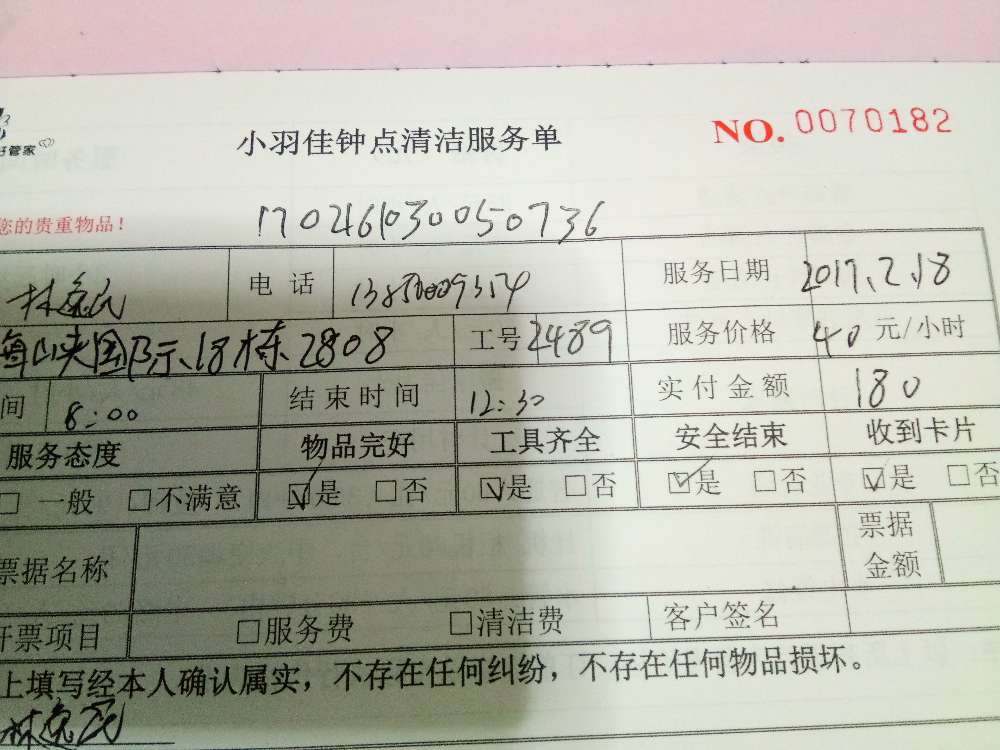 好管家
小羽佳钟点清洁服务单 NO. 0070182
您的贵重物品!
1702461030050736
林逸民 电话 服务日期 2017.2.18
海峡国际、18栋、2808 工号 2489 服务价格 40 元/小时
间 8:00 结束时间 12:30 实付金额 180
服务态度 物品完好 工具齐全 安全结束 收到卡片
□ 一般 □不满意 ☑是 □否 ☑是 □否 ☑是 □否 ☑是 □否
票据名称 票据金额
开票项目 □服务费 □清洁费 客户签名
上填写经本人确认属实，不存在任何纠纷，不存在任何物品损坏。
林逸民